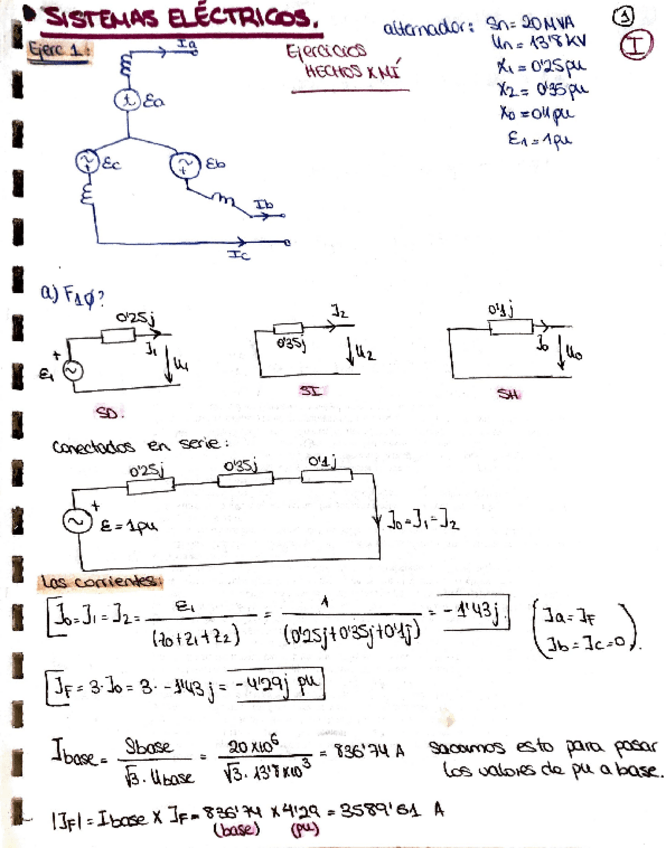 SISTEMAS ELÉCTRICOS.
Ejerc 1:
Ejercicios
HECHOS X MÍ
alternador: Sn = 20 MVA
Un = 13'8 KV
X1 = 0'25 pu
X2 = 0'35 pu
X0 = 0'1 pu
E1 = 1 pu
1
I
Ia
Ea
Ec
Eb
Ib
Ic
a) F1φ?
0'25j
E1
+
I1
U1
SD.
0'35j
I2
U2
SI
0'1j
I0
U0
SH
Conectados en serie:
0'25j 0'35j 0'1j
+
E = 1pu
I0 = I1 = I2
Las corrientes:
I0 = I1 = I2 = E1 / (z0+z1+z2) = 1 / (0'25j+0'35j+0'1j) = -1'43j. (Ia = IF
Ib = Ic = 0).
IF = 3·I0 = 3·-1'43j = -4'29j pu
Ibase = Sbase / √3·Ubase = 20x10⁶ / √3·13'8x10³ = 836'74 A sacamos esto para pasar
los valores de pu a base.
|IF| = Ibase x IF = 836'74 x 4'29 = 3589'61 A
(base) (pu)